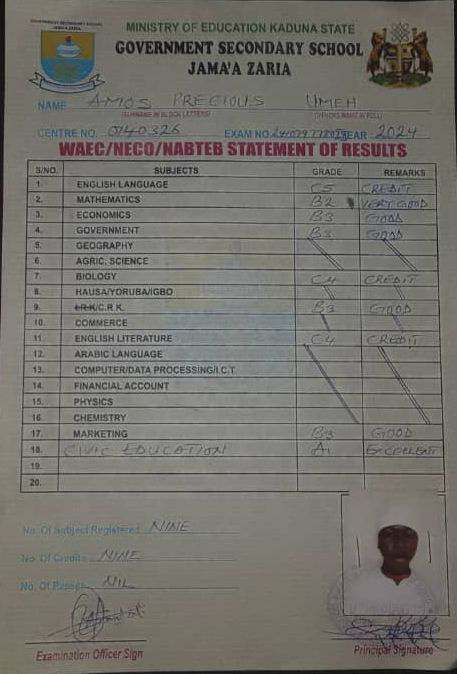 MINISTRY OF EDUCATION KADUNA STATE
GOVERNMENT SECONDARY SCHOOL
JAMA'A ZARIA
NAME AMOS PRECIOUS UMEH
(SURNAME IN BLOCK LETTERS) (OTHERS NAME IN FULL)
CENTRE NO. 0140326 EXAM NO. YEAR 2024
WAEC/NECO/NABTEB STATEMENT OF RESULTS
S/NO. SUBJECTS GRADE REMARKS
1. ENGLISH LANGUAGE C5 CREDIT
2. MATHEMATICS B2 VERY GOOD
3. ECONOMICS B3 GOOD
4. GOVERNMENT B3 GOOD
5. GEOGRAPHY
6. AGRIC. SCIENCE
7. BIOLOGY C4 CREDIT
8. HAUSA/YORUBA/IGBO
9. I.R.K/C.R.K. B3 GOOD
10. COMMERCE
11. ENGLISH LITERATURE C4 CREDIT
12. ARABIC LANGUAGE
13. COMPUTER/DATA PROCESSING/I.C.T
14. FINANCIAL ACCOUNT
15. PHYSICS
16. CHEMISTRY
17. MARKETING B3 GOOD
18. CIVIC EDUCATION A1 EXCELLENT
19.
20.
No. Of Subject Registered NINE
No. Of Credits NINE
No. Of Passes NIL
Examination Officer Sign Principal Signature